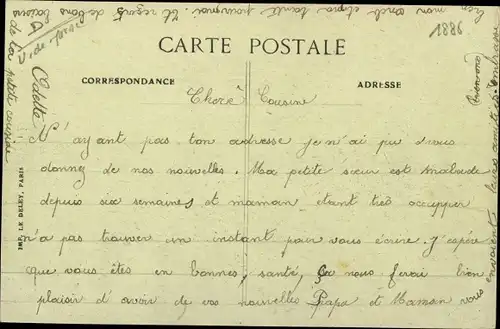 1886
CARTE POSTALE
CORRESPONDANCE
ADRESSE
Cherè Cousine
N'ayant pas ton adresse je n'ai pu vous
donnez de nos nouvelles. Ma petite sœur est malade
depuis six semaines et maman étant très occupper
n'a pas trouver un instant pour vous écrire. J'espère
que vous êtes en bonnes, santé, Ça nous ferai bien
plaisir d'avoir de vos nouvelles Papa et Maman vous
envoient
mon oncle et
Et reçois
de bons baisers
de ta petite cousine
Odette
IMP. LE DELEY, PARIS